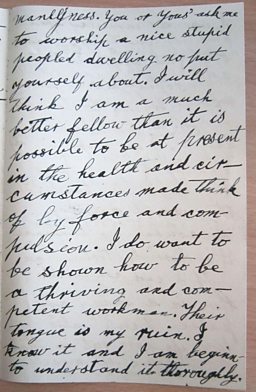 manliness. You or yous' ask me
to worship a nice stupid
peopled dwelling no put
yourself about. I will
think I am a much
better fellow than it is
possible to be at present
in the health and cir-
cumstances made think
of by force and com-
pulsion. I do want to
be shown how to be
a thriving and com-
petent workman. Their
tongue is my ruin. I
know it and I am beginn-
to understand it thoroughly.